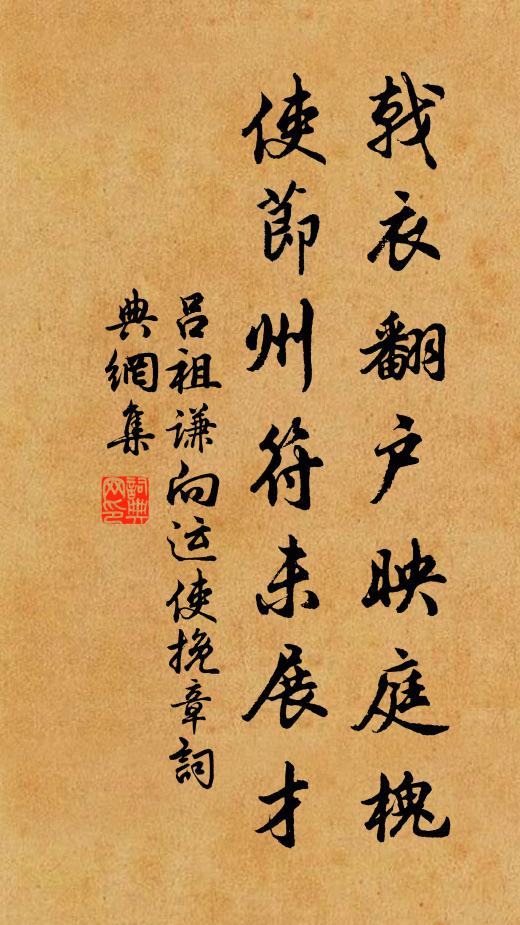 戟衣翻户映庭槐
使節州符未展才
吕祖謙向运使挽章詞
典網集
詞典网印